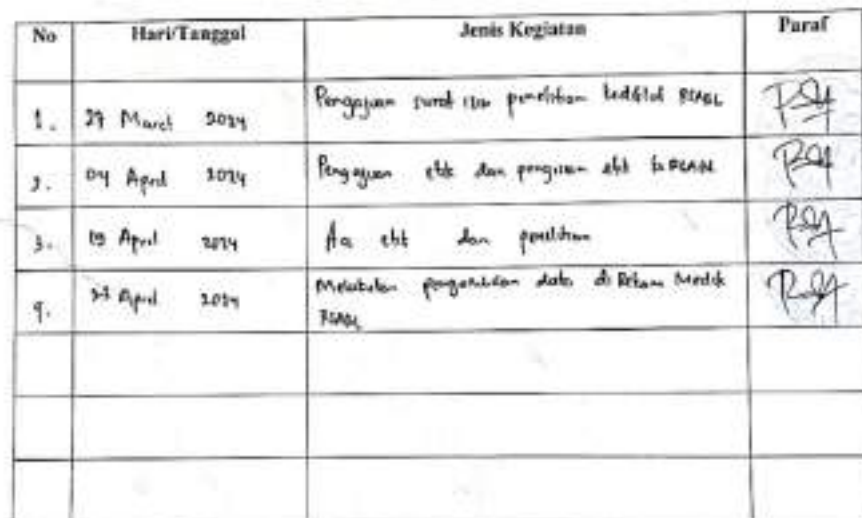 No Hari/Tanggal Jenis Kegiatan Paraf
1. 27 Maret 2024 Pengajuan surat izin penelitian kediklat RSABL
2. 04 April 2024 Pengajuan etik dan pengisian etik
3. 19 April 2024 Acc etik dan penelitian
4. April 2024 Melakukan pengambilan data di Rekam Medik
RSABL